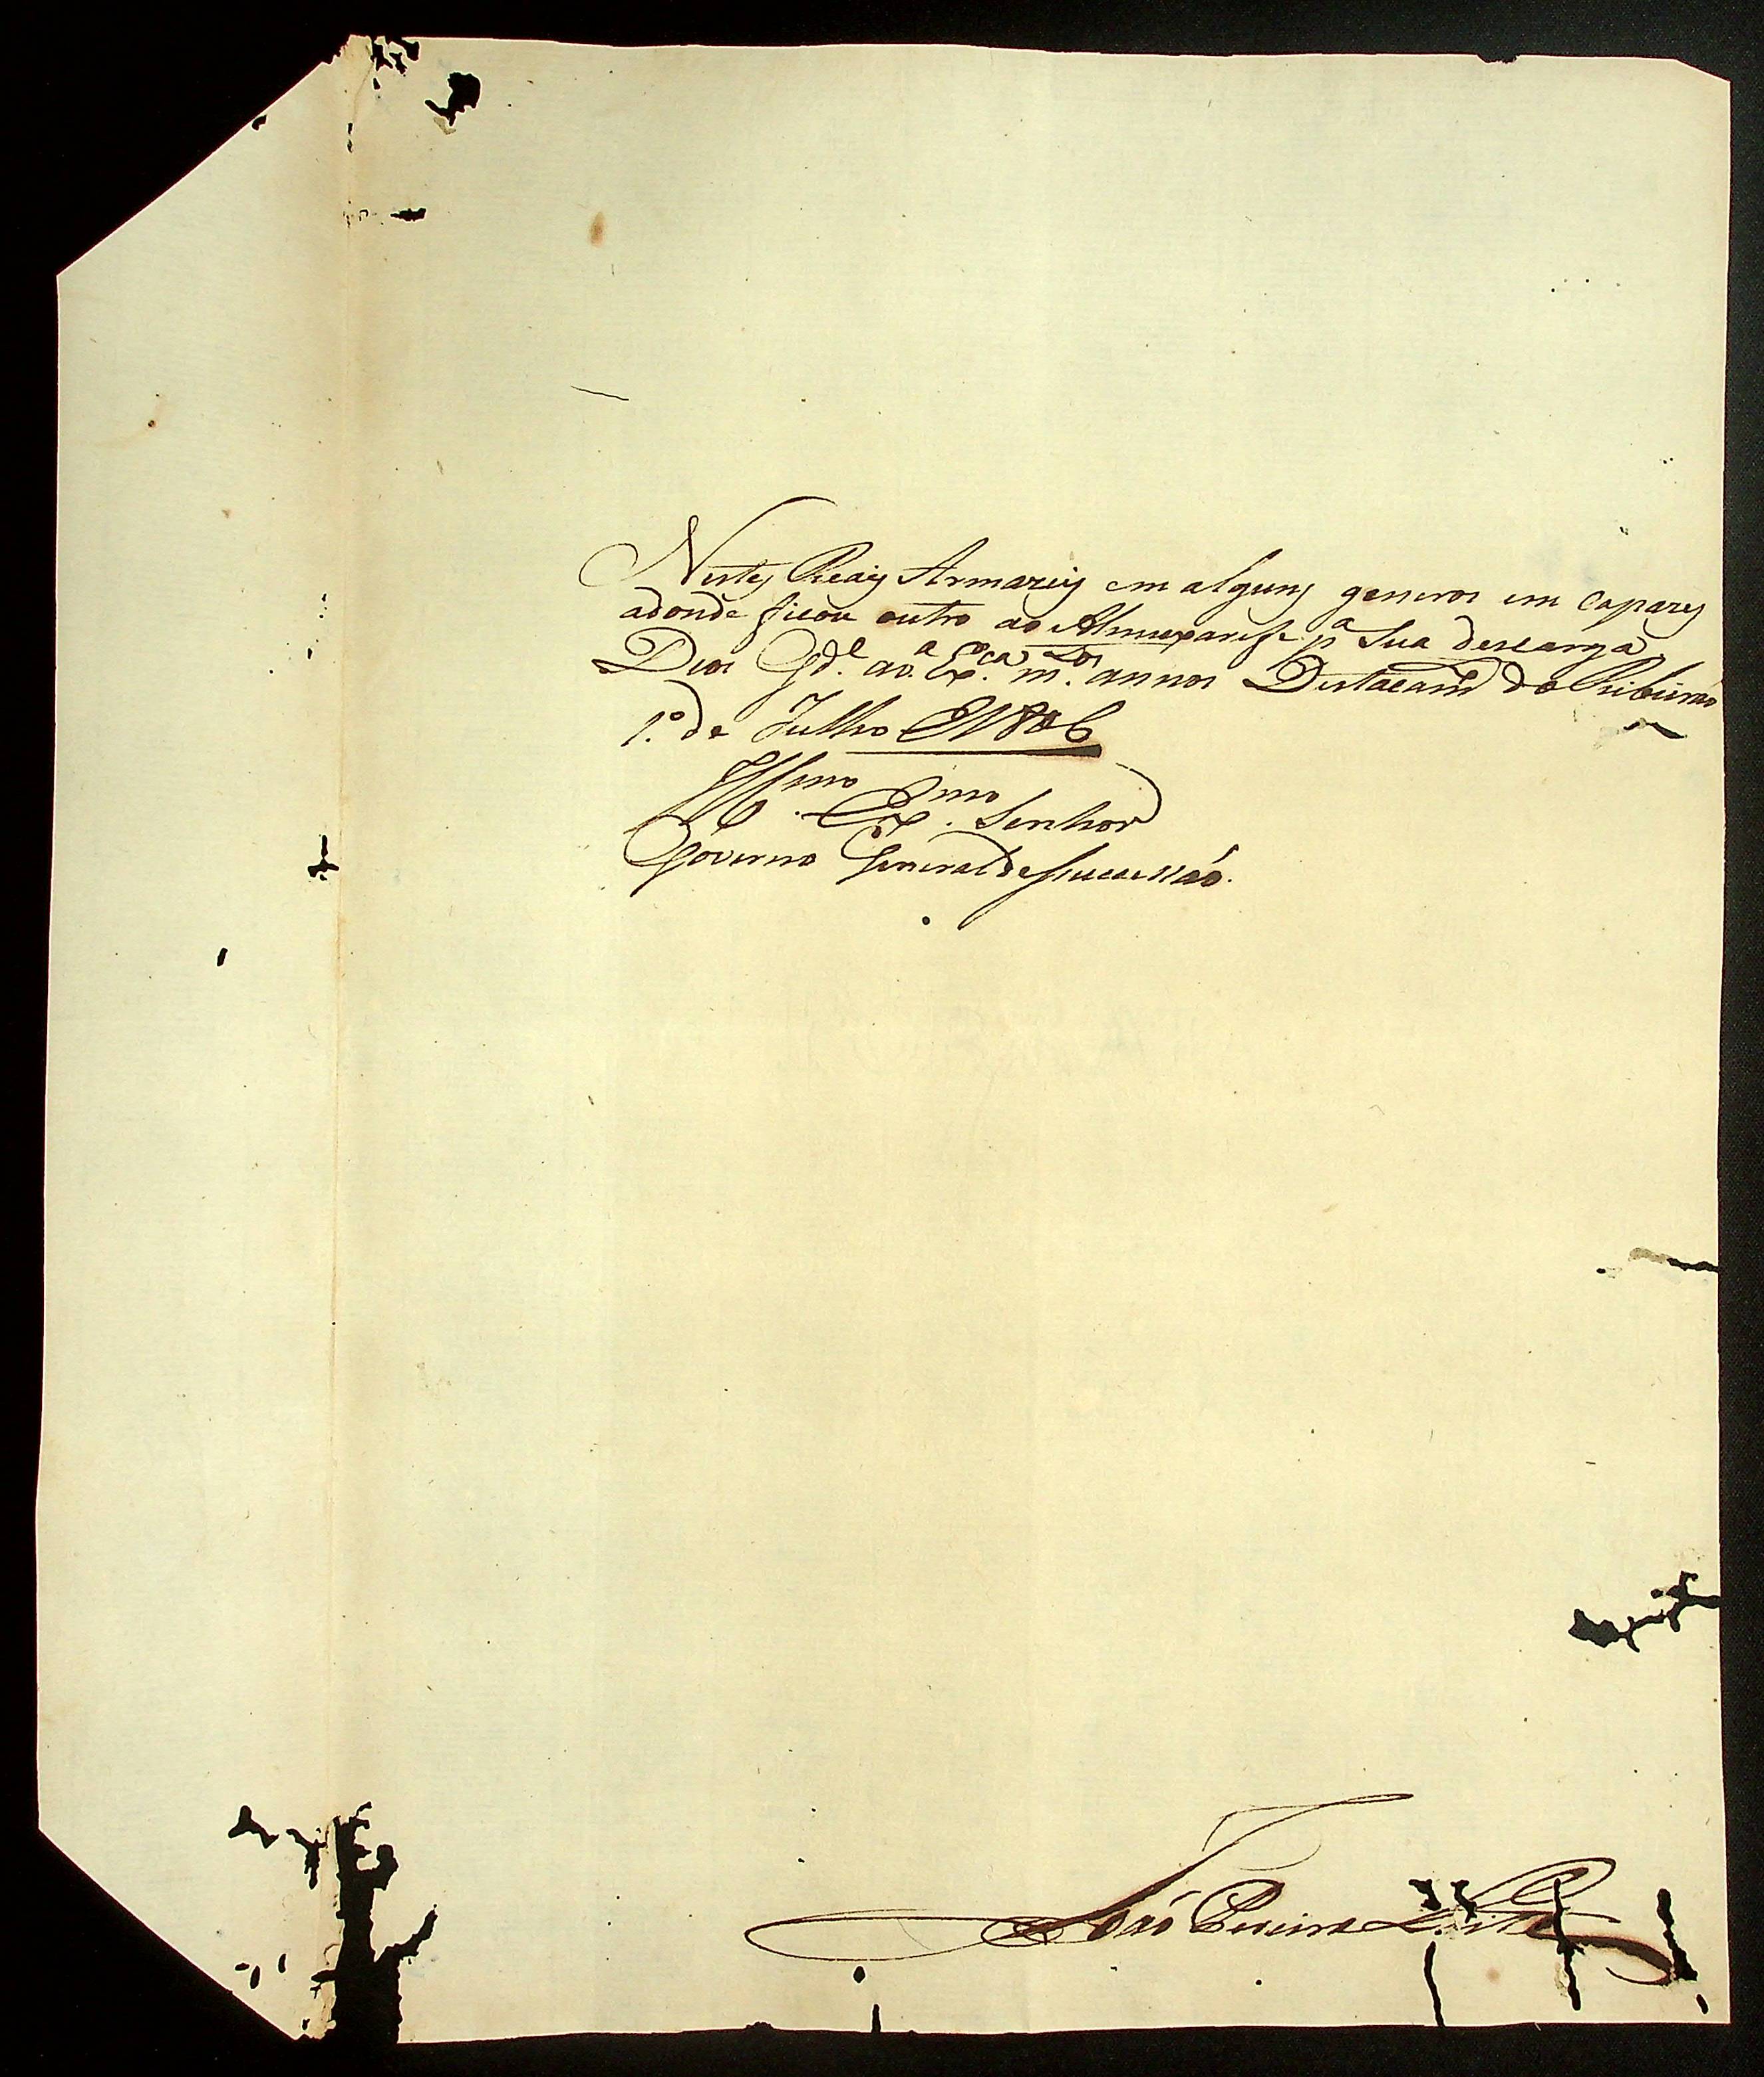 Nestes Reais Armazeis em alguns generos em capazes
adonde ficou outro ao Almoxarife p.ª Sua descarga,
Deos G.de a V. Ex.ca m.tos annos Destacam.to do Ribeirão
1.º de Julho
Ill.mo Ex.mo Senhor
Governo General de Sucessáo.
João Pereira Leite